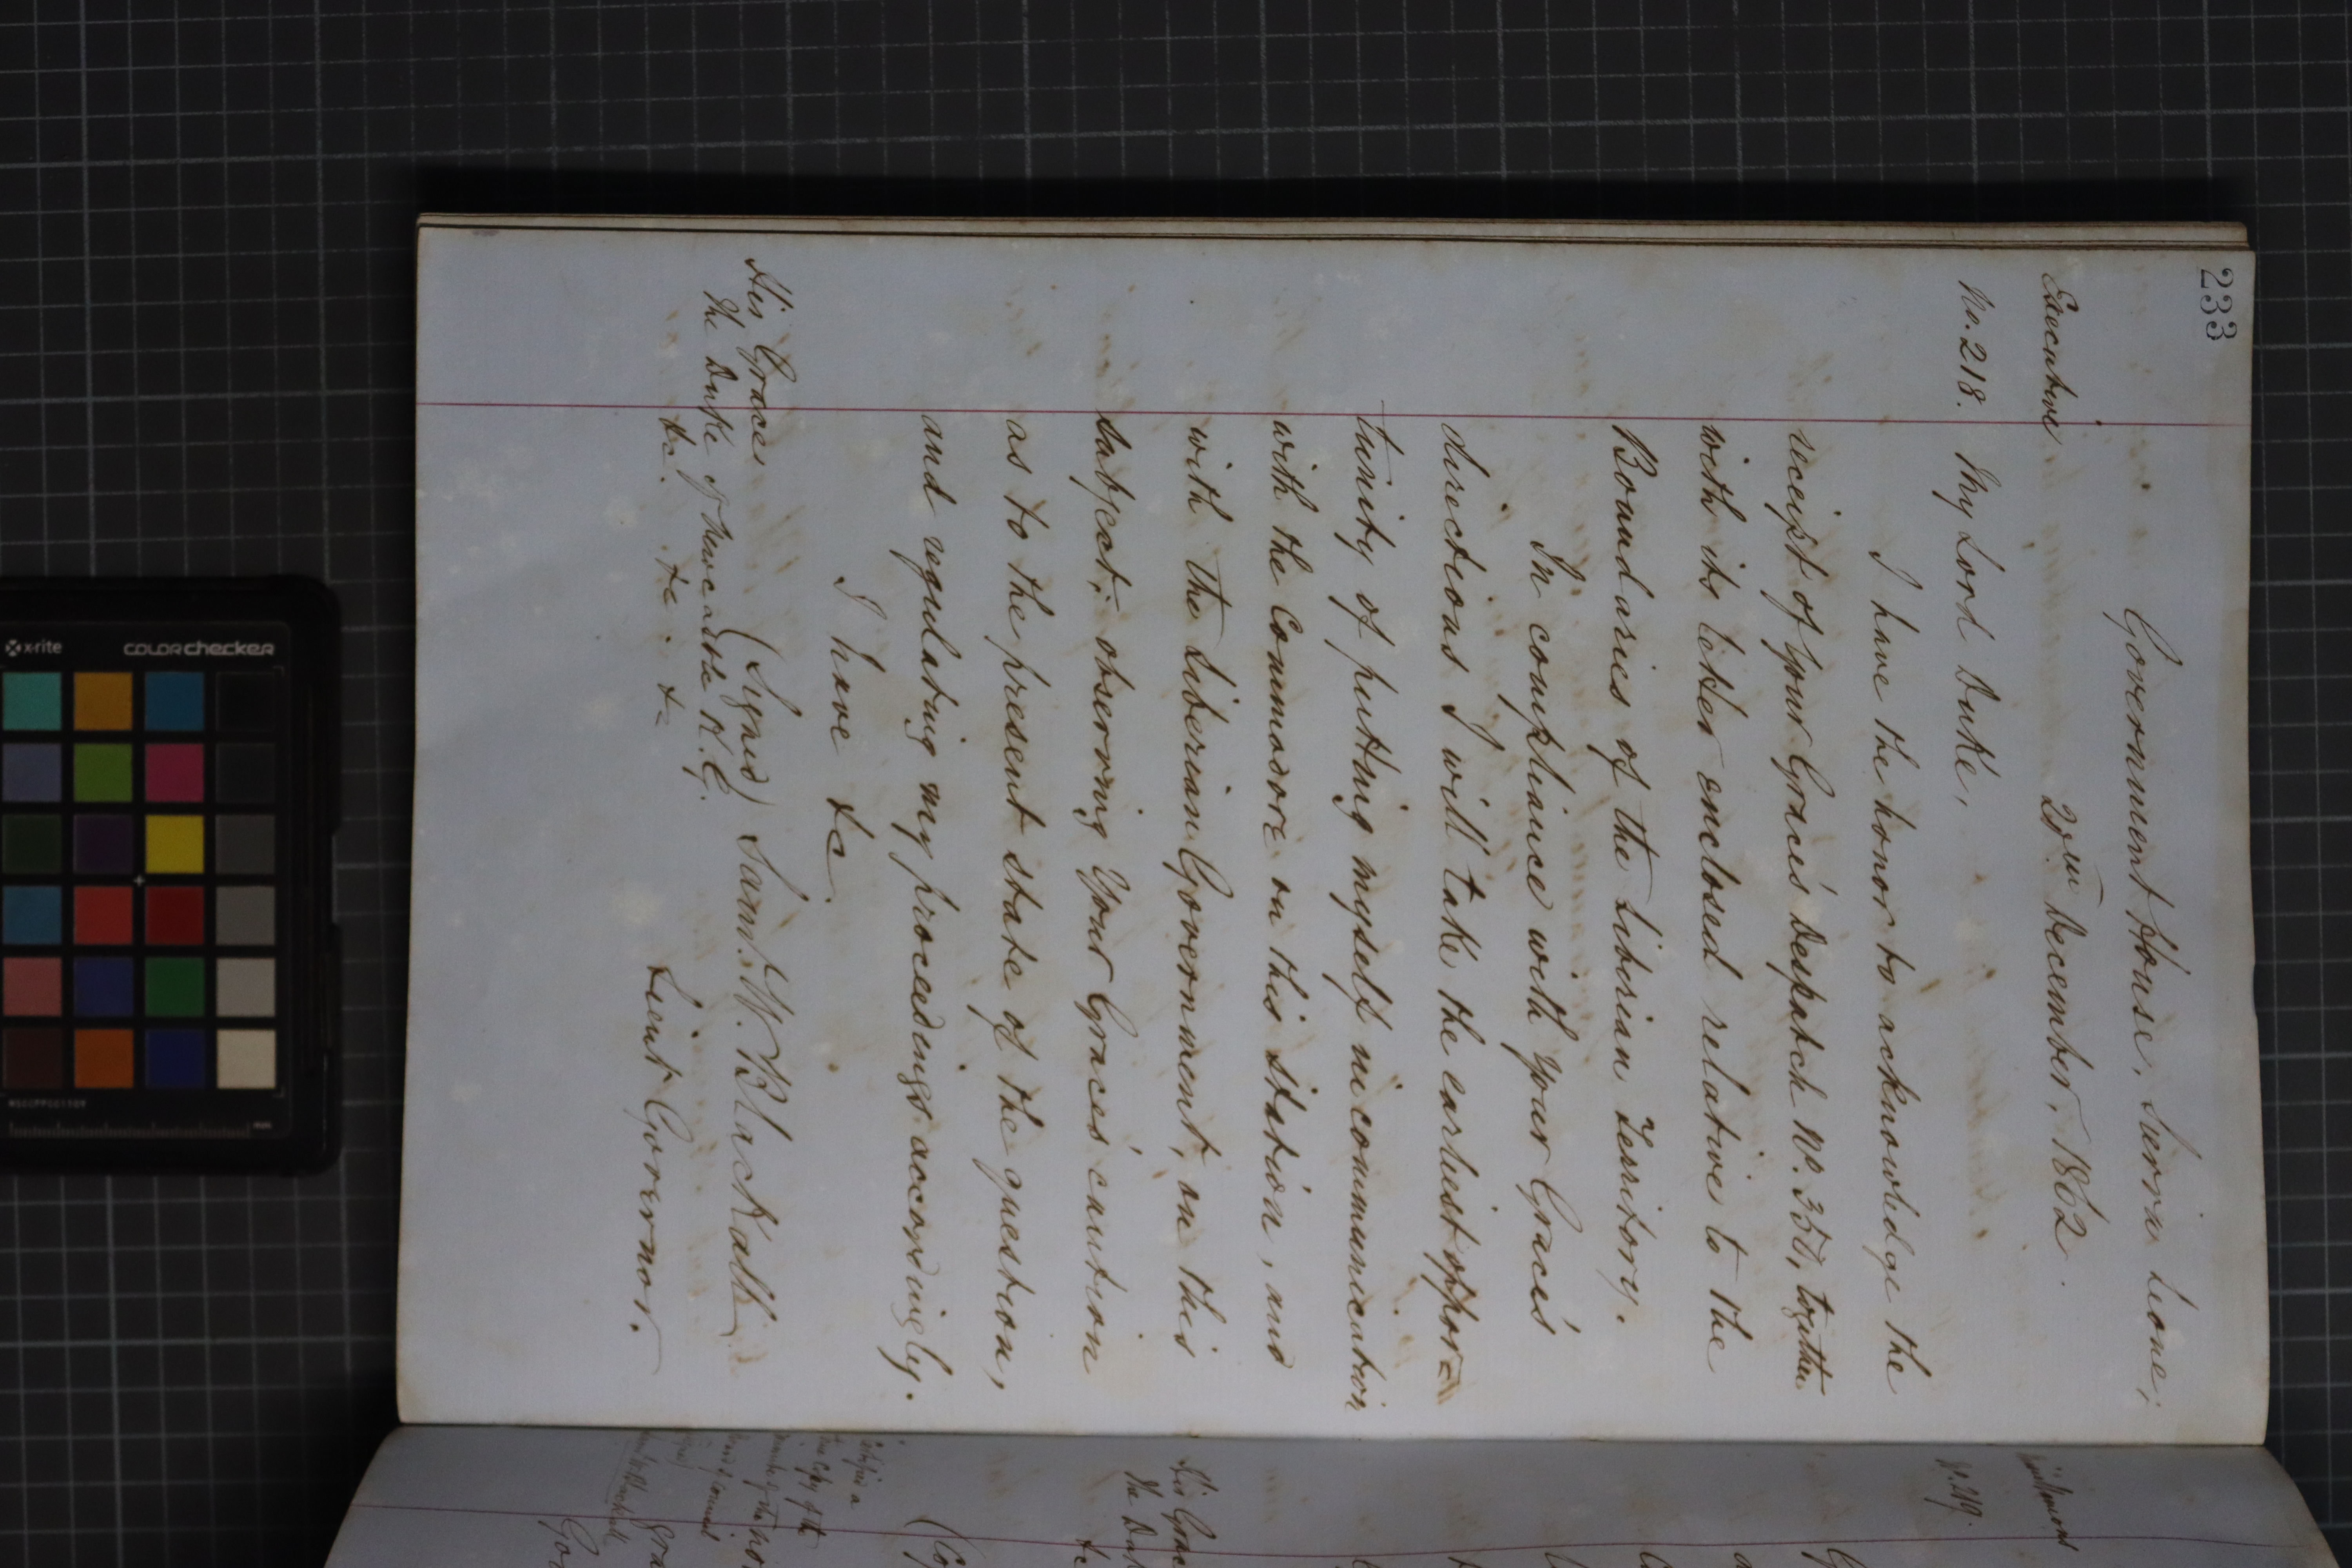 233
Government House, Sierra Leone,
Executive 20th December, 1862.
No. 218. My Lord Duke,
I have the honor to acknowledge the
receipt of Your Grace's Despatch No. 357, together
with its letter enclosed relative to the
Boundaries of the Liberian Territory.
In compliance with Your Grace's
directions I will take the earliest oppor=
tunity of putting myself in communication
with the Commodore on this station, and
with the Liberian Government, on this
subject; observing Your Grace's caution
as to the present state of the question,
and regulating my proceedings accordingly.
I have &c.
(Signed) Saml. W. Blackall
Lieut Governor.
His Grace
The Duke of Newcastle K.G.
&c. &c. &c
No. 219.
Certified a
true Copy of the
His Grac
The Du
&c
x·rite
colorchecker